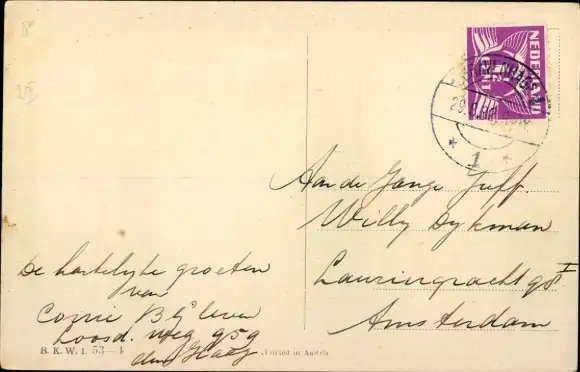 NEDERLAND
CENT
'S-GRAVENHAGE
1
Aan de Jonge Juff.
Willy Dykman
Lauriergracht 98 I
Amsterdam
De hartelyke groeten
van
Corrie
Loosd. weg 959
den Haag
B. K. W. I. 53—4
Printed in Austria